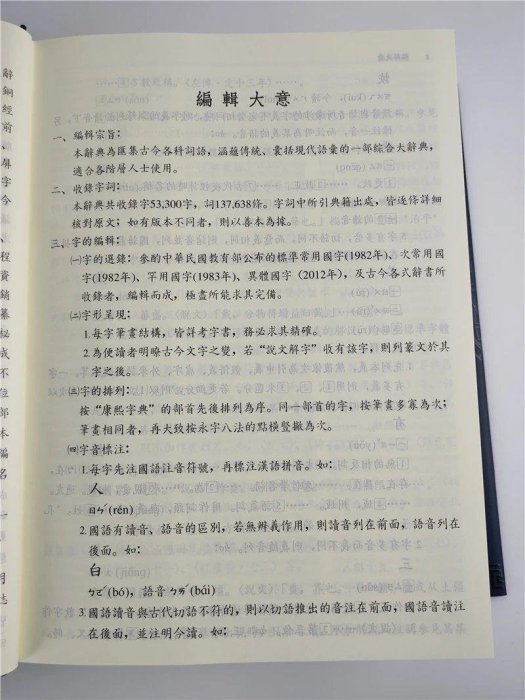 編輯大意
一、編輯宗旨：
本辭典為匯集古今各科詞語，涵蘊傳統、囊括現代語彙的一部綜合大辭典，
適合各階層人士使用。
二、收錄字詞：
本辭典共收錄字53,300字，詞137,638條。字詞中所引典籍出處，皆逐條詳細
核對原文；如有版本不同者，則以善本為據。
三、字的編輯：
㈠字的選錄：參酌中華民國教育部公布的標準常用國字(1982年)、次常用國
字(1982年)、罕用國字(1983年)、異體國字（2012年），及古今各式辭書所
收錄者，編輯而成，極盡所能求其完備。
㈡字形呈現：
1.每字筆畫結構，皆詳考字書，務必求其精確。
2.為便讀者明瞭古今文字之變，若“說文解字”收有該字，則列篆文於其
字之後。
㈢字的排列：
按“康熙字典”的部首先後排列為序。同一部首的字，按筆畫多寡為次；
筆畫相同者，再大致按永字八法的點橫豎撇為次。
㈣字音標注：
1.每字先注國語注音符號，再標注漢語拼音。如：
人
ㄖㄣˊ(rén)
2.國語有讀音、語音的區別，若無辨義作用，則讀音列在前面，語音列在
後面。如：
白
ㄅㄛˊ(bó)，語音ㄅㄞˊ(bái)
3.國語讀音與古代切語不符的，則以切語推出的音注在前面，國語音讀注
在後面，並注明今讀。如：
辭
銅
經
前
屏
字
今
程
資
鏑
纂
祕
成
不
位
部
本
編
名
明
志